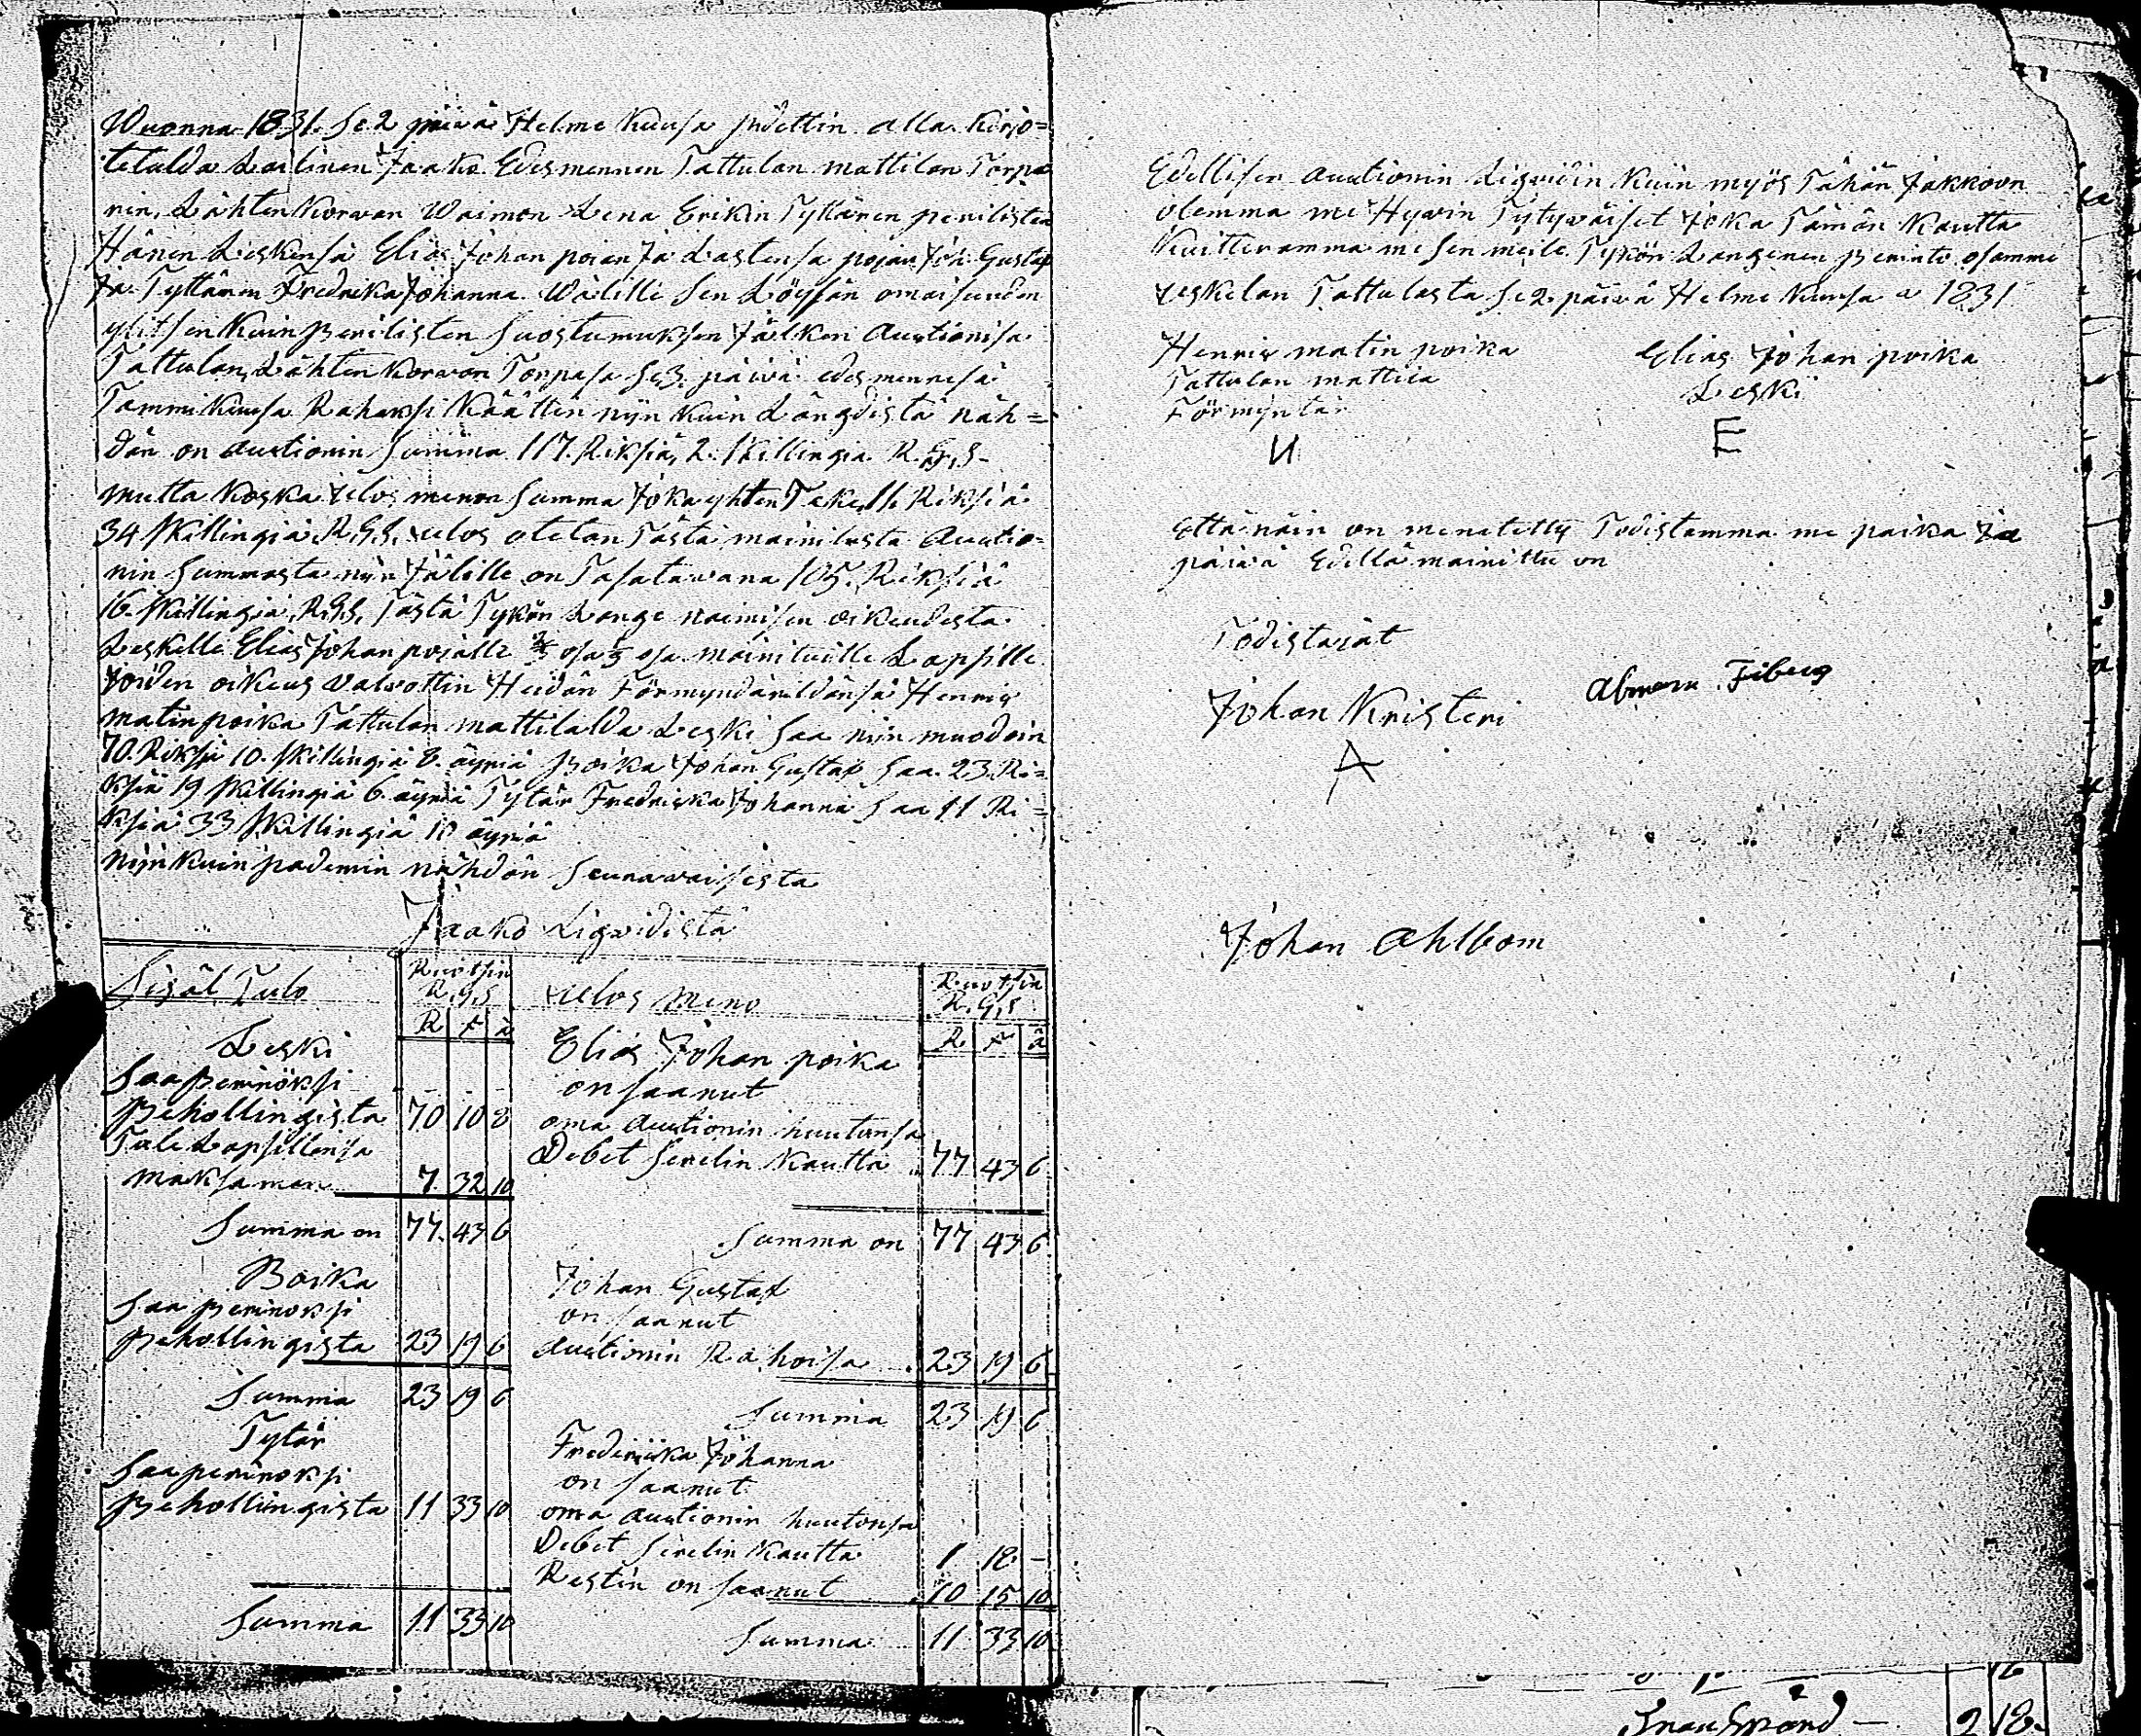 Wuonna 1831. Se 2 päivä Helme Kuusa pidettin alla kirjo=
tetulda Lailinen Jaako Edesmennen Tattulan mattilan Torpa
rin, Lähten Korwan Waimon Lena Erikin Tyttären perilisten
Hänen Leskensä Elias Johan poian Ja Lastensa pojan Joh: Gustaf
Ja Tyttären Fredrika Johanna Wälille Sen Löyssän omaisuuden
ylitsen Kuin perilisten Suostumuksen Jälken Auctionisa
Tattulan, Lähten Korwan Torpasa Se 3. päivä edesmennesä
Tammi Kuusa Rahaksi Käättin nijn Kuin Längdistä näh=
dän on auctionin Summa 117. Riksiä, 2. Skillingiä R. G. S.
mutta Koska Ulos menon Summa Joka yhten Teke 11. Riksiä
34 Skillingiä R. G. S. ulos otetan Tästä mainitusta Auctio=
nin Summasta nijn Jälille on Tasatawana 105. Riksiä
16. Skillingiä, R. G. S. Tästä Tykön Lange naimisen oikeudesta
Leskelle Elias Johan pojalle 2/3 osa 1/3 osa mainituille Lapsille
Joiden oikeus Walwottin Heidän Förmyndärildänsä Henrik
matin poika Tattulan mattilalda Leski Saa nijn muodoin
70. Riksiä 10. Skillingiä 8. äyriä poika Johan Gustaf Saa 23. Ri=
ksiä 19 Skillingiä 6. äyriä Tytär Fredriika Johanna Saa 11 Ri=
ksiä 33 Skillingiä 10 äyriä
nijn Kuin pademin nähdän Seurawaisesta
Jaako Ligwidista
Sisäl Tulo
Ruotsin
R. G. S
R S ä
Leski
Saa perinöksi
Behollingista 70 10 8
Tule Lapsillensa
maksaman 7. 32 10
Summa on 77. 43 6
Boika
Saa perinoksi
Behollingista 23 19 6
Summa 23 19 6
Tytär
Saa perinoksi
Behollingista 11 33 10
Summa 11 33 10
Ulos meno
Ruotsin
R. G. S
R S ä
Elias Johan poika
on saanut
oma Auctionin huutonsa
Debet Sedelin Kautta 77 43 6
Summa on 77 43 6
Johan Gustaf
on saanut
Auctionin Rahoisa 23 19 6
Summa 23 19 6
Fredriika Johanna
on saanut
oma auctionin huutonsa
Debet Sedelin Kautta 1 18 -
Restin on saanut 10 15 10
Summa 11 33 10
Edellisen Auctionin Ligvidin Kuin myös Tähän Jakkoon
olemma me Hywin Tytywäiset Joka Tämän Kautta
Kuitteramma me Sen meile Tykön Langenen perinto osamme
Jeskelan Tattulasta Se 2. päivä Helme Kuusa a 1831
Henrik matin poika
Tattulan mattila
Förmyntär
Elias Johan poika
Leski
E
Että näin on menetetty Todistamma me paika Ja
päivä Edellä mainittu on
Todistajat
Johan Kristeri
A
Johan Ahlbom
2 18.